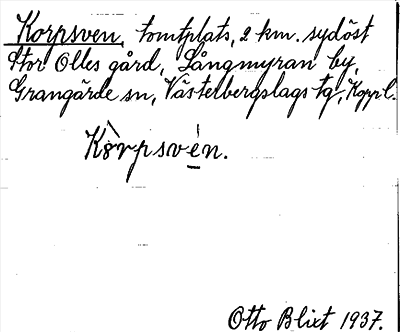 Korpsven, tomtplats, 2 km. sydöst
Stor Olles gård, Långmyran by,
Grangärde sn, Västerbergslags tg, Koppl.
Kòrpsvén.
Otto Blixt 1937.